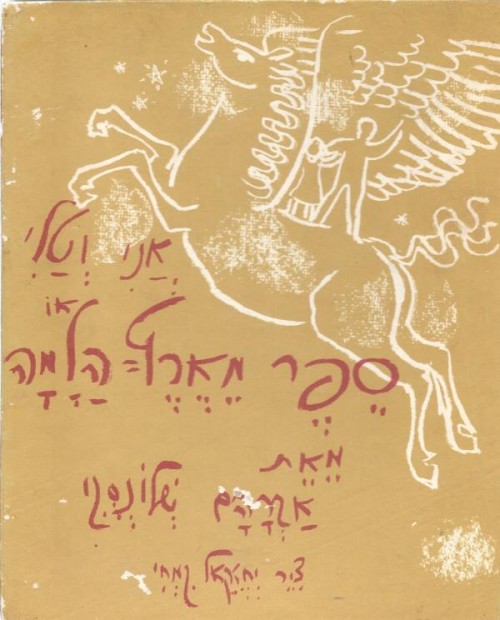 אֲנִי וְטַלִּי
אוֹ
סֵפֶר מֵאֶרֶץ־הַלָּמָה
מֵאֵת
אַבְרָהָם שְׁלוֹנְסְקִי
צִיֵּר יְחֶזְקֵאל קִמְחִי